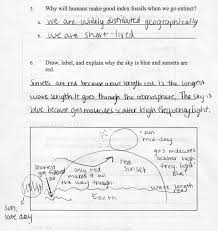 5. Why will humans make good index fossils when we go extinct?
1. we are widely distributed geographically
2. we are short-lived
6. Draw, label, and explain why the sky is blue and sunsets are red.
Sunsets are red because wave length red is the longest
wave length. It goes through the atmosphere. The sky is
blue because gas molecules scatter high frequency light.
sun
mid-day
gas molecules
scatter high
freq. light
blue
red
sunset
shortest
get filtered
out
only red
makes it
the way through
wave length
red
Earth
sun,
late day